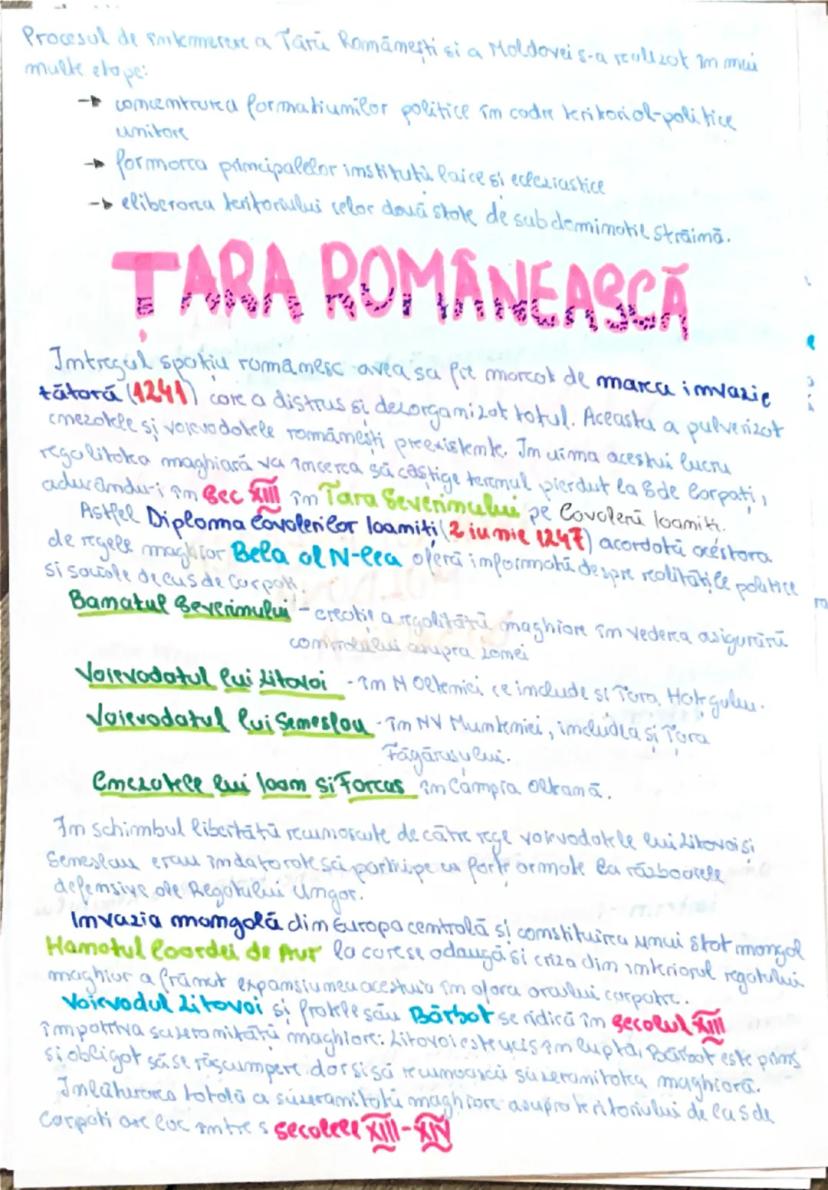 Procesul de întemeiere a Țării Românești si a Moldovei s-a realizat în mai
multe etape:
→ concentrarea formatiunilor politice în cadre teritorial-politice
unitare
→ formarea principalelor instituții laice si ecleziastice
→ eliberarea teritoriului celor două state de sub dominatii străină.
ȚARA ROMÂNEASCĂ
Intregul spatiu romanesc avea sa fie marcat de marea invazie
tătară (1241) care a distrus si dezorganizat totul. Aceasta a pulverizat
cnezatele și voievodatele românești preexistente. In urma acestui lucru
regalitatea maghiară va încerca să câștige terenul pierdut la S de Carpați,
aducându-i în Sec XIII în Tara Severinului pe Cavalerii Ioaniti.
Astfel Diploma Cavalerilor Ioamiți (2 iunie 1247) acordată acestora
de regele maghiar Bela al IV-lea oferă informații despre realitățile politice
si sociale de la S de Carpați.
Banatul Severinului - creatie a regalității maghiare în vederea asigurării
controlului asupra zonei
Voievodatul lui Litovoi - în N Olteniei ce include si Tara Hațegului.
Voievodatul lui Semeslau - în NV Munteniei, includea și Tara
Făgărașului.
Cnezatele lui Ioan Si Farcas în Câmpia Olteană.
In schimbul libertății recunoscute de către rege voievodatele lui Litovoi și
Seneslau erau îndatorate să participe cu forțe armate la războaiele
defensive ale Regatului Ungar.
Invazia mongolă din Europa centrală și constituirea unui stat mongol
Hanatul Hoardei de Aur la care se adaugă si criza din interiorul regatului
maghiar a frânat expansiunea acestuia în afara arcului carpatic.
Voievodul Litovoi și fratele său Bărbat se ridică în secolul XIII
împotriva suzeranității maghiare: Litovoi este ucis în luptă, Bărbat este prins
și obligat să se răscumpere dar si să recunoască suzeranitatea maghiară.
Inlăturarea totală a suzeranitatii maghiare asupra teritoriului de la S de
Carpati are loc intre s secolele XIII-XIV